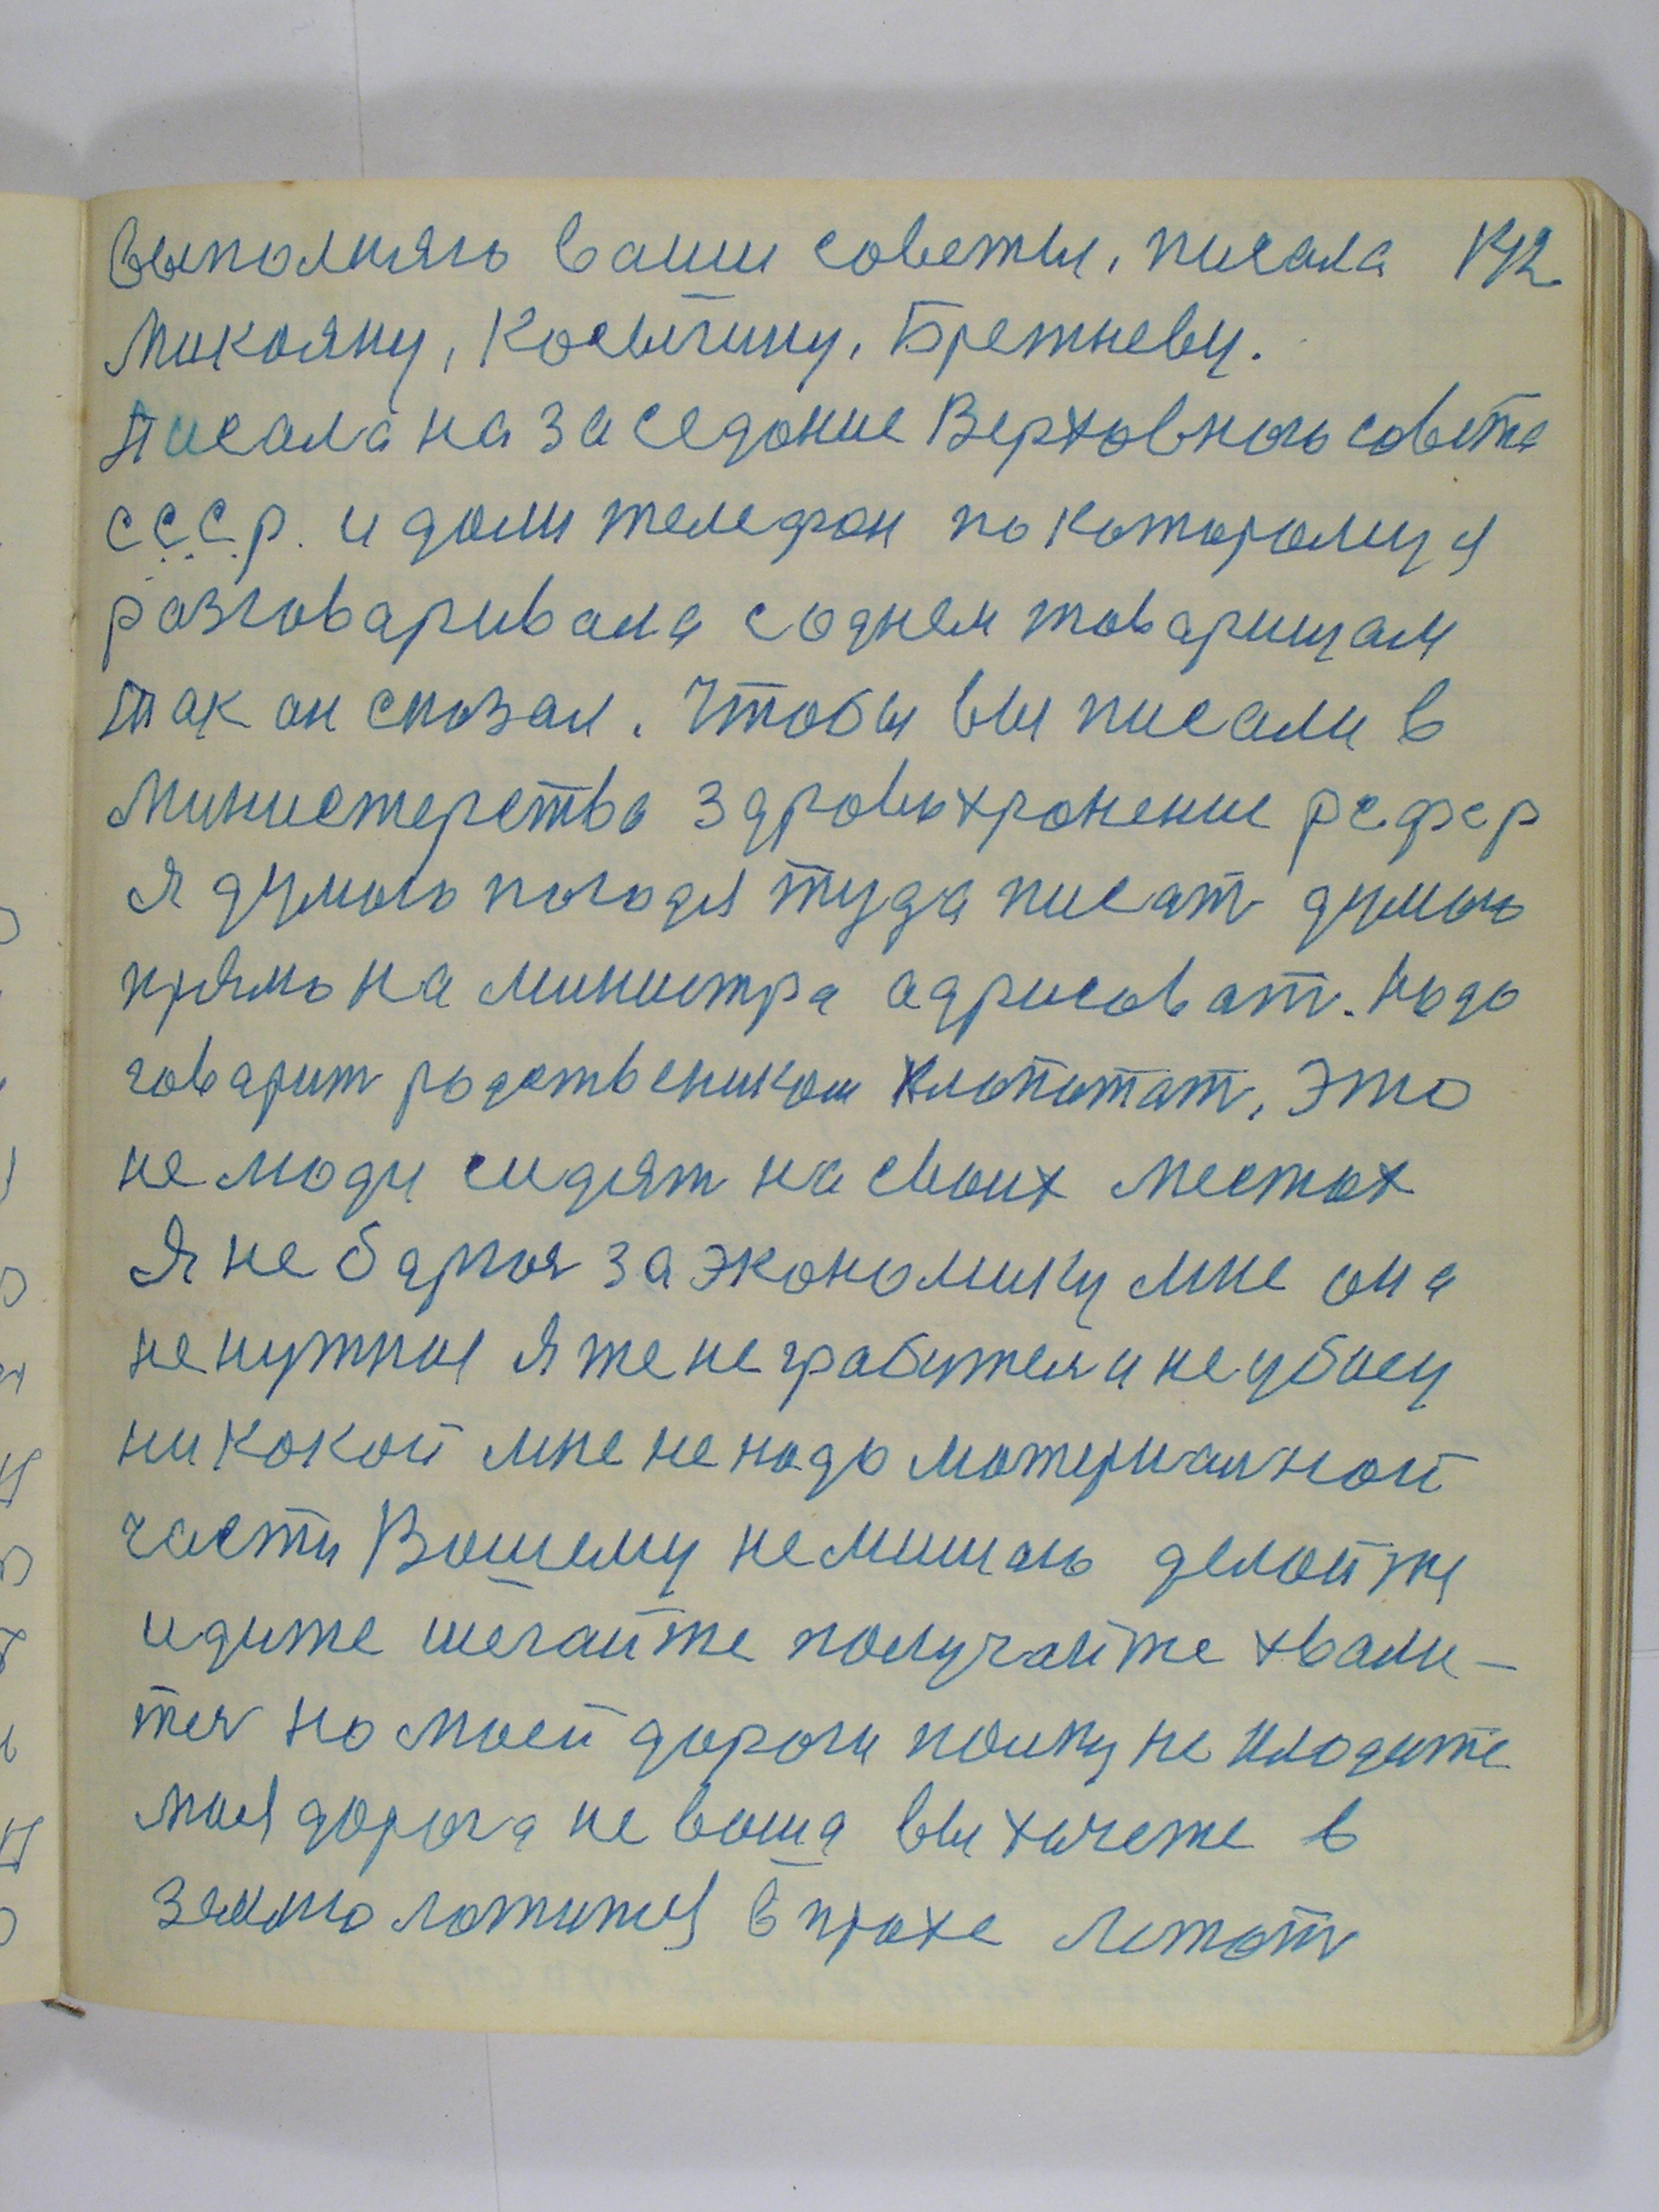 выполняю ваши советы, писала 142
Микояну, Косыгину, Брежневу.
Писала на заседание Верховного совета
С.С.С.Р. и доли телефон по которому я
разговаривала с однем товарищам
так он сказал. Чтобы вы писали в
Министерства здровохронение рсфср
Я думаю погодя туда писат думаю
прямо на министра адрисоват. Надо
говарит родствеником хлопотат, это
не люди сидят на своих местах
Я не барюя за экономику мне она
не нужная я же не грабителя и не убиец
ни кокой мне не надо материалной
части Вашему не мишаю делайти
идите шегайте получайте хвали-
тея но моей дороги полку не кладите
моя дорога не ваша вы хичете в
землю ложитя в прахе лежат